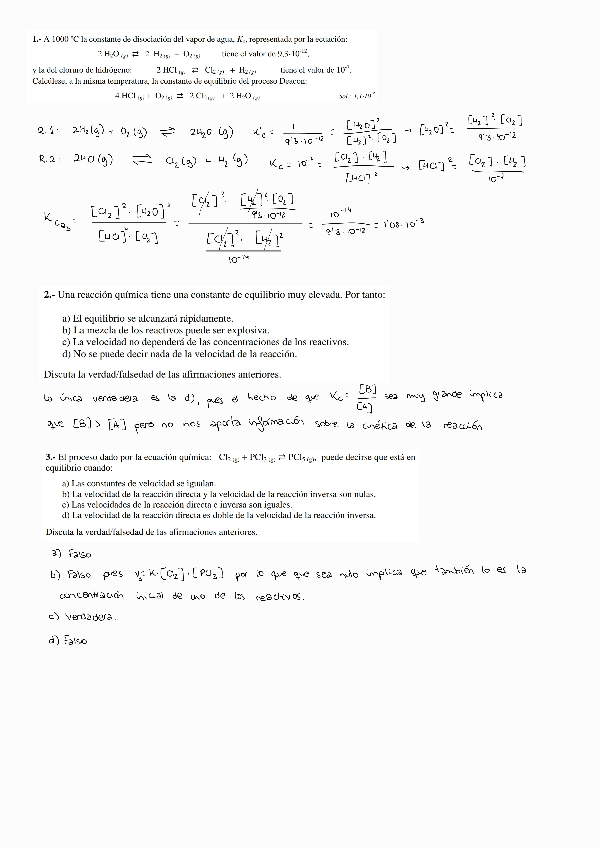 1.- A 1000 °C la constante de disociación del vapor de agua, Kc, representada por la ecuación:
2 H2O (g) ⇄ 2 H2 (g) + O2 (g) tiene el valor de 9,3·10-12,
y la del cloruro de hidrógeno: 2 HCl (g) ⇄ Cl2 (g) + H2 (g) tiene el valor de 10-7.
Calcúlese, a la misma temperatura, la constante de equilibrio del proceso Deacon:
4 HCl (g) + O2 (g) ⇄ 2 Cl2 (g) + 2 H2O (g)
R.1: 2H2(g) + O2(g) ⇄ 2H2O (g) K'c = 1 / 9'3·10-12 = [H2O]2 / [H2]2·[O2] → [H2O]2 = [H2]2·[O2] / 9'3·10-12
R.2: 2HCl(g) ⇄ Cl2(g) + H2(g) Kc = 10-7 = [Cl2]·[H2] / [HCl]2 → [HCl]2 = [Cl2]·[H2] / 10-7
= [Cl2]2·[H2O]2 / [HCl]4·[O2] = [Cl2]2·[H2]2·[O2] / 9'3·10-12 / [Cl2]2·[H2]2 / 10-14 = 10-14 / 9'3·10-12 = 1'08·10-3
2.- Una reacción química tiene una constante de equilibrio muy elevada. Por tanto:
a) El equilibrio se alcanzará rápidamente.
b) La mezcla de los reactivos puede ser explosiva.
c) La velocidad no dependerá de las concentraciones de los reactivos.
d) No se puede decir nada de la velocidad de la reacción.
Discuta la verdad/falsedad de las afirmaciones anteriores.
La única verdadera es la d), pues el hecho de que Kc = [B] / [A] sea muy grande implica
que [B] > [A] pero no nos aporta información sobre la cinética de la reacción
3.- El proceso dado por la ecuación química: Cl2 (g) + PCl3 (g) ⇄ PCl5 (g), puede decirse que está en
equilibrio cuando:
a) Las constantes de velocidad se igualan.
b) La velocidad de la reacción directa y la velocidad de la reacción inversa son nulas.
c) Las velocidades de la reacción directa e inversa son iguales.
d) La velocidad de la reacción directa es doble de la velocidad de la reacción inversa.
Discuta la verdad/falsedad de las afirmaciones anteriores.
a) Falso
b) Falso pues = K·[Cl2]·[PCl3] por lo que que sea nulo implica que también lo es la
concentración inicial de uno de los reactivos.
c) Verdadera.
d) Falso